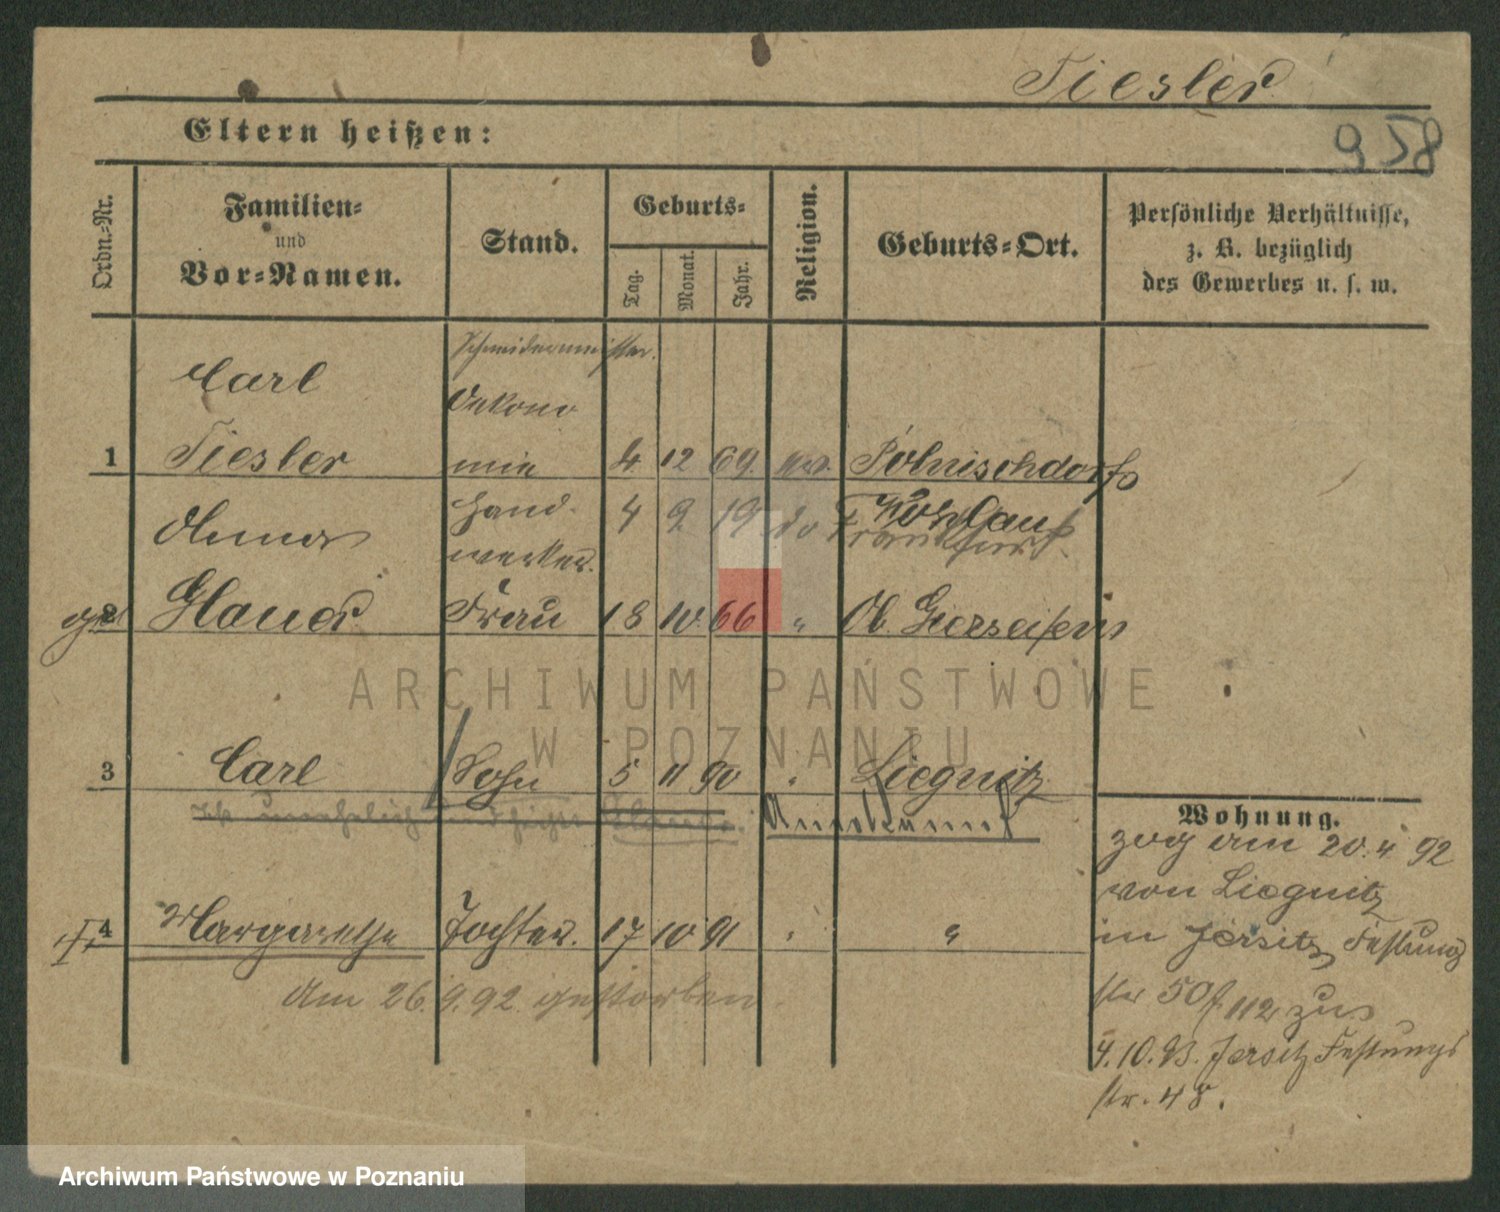 Tiesler
Eltern heißen:
958
Ordn.-Nr.
Familien-
und
Vor-Namen.
Stand.
Geburts-
Tag.
Monat.
Jahr.
Religion.
Geburts-Ort.
Persönliche Verhältnisse,
z. B. bezüglich
des Gewerbes u. s. w.
Schneidermeister.
Carl
Oekono
1 Tiesler mie 4 12 69 ev. Polnischdorf
Hand- 4 9 19 do Wohlau
Frankfurt
werker.
2 Glauer Frau 18 10 66 " Ob. Gierseifen
3 Carl Sohn 5 11 90 " Liegnitz
Ist unehelich
Auskunft
4 Margarethe Tochter. 17 10 91 " "
Am 26.9.92. gestorben.
Wohnung.
zog am 20.4 92
von Liegnitz
in Jersitz Festung
str 50 f 112 zu
4.10.93. Jersitz Festungs
str. 48.
ARCHIWUM PAŃSTWOWE
W POZNANIU
Archiwum Państwowe w Poznaniu